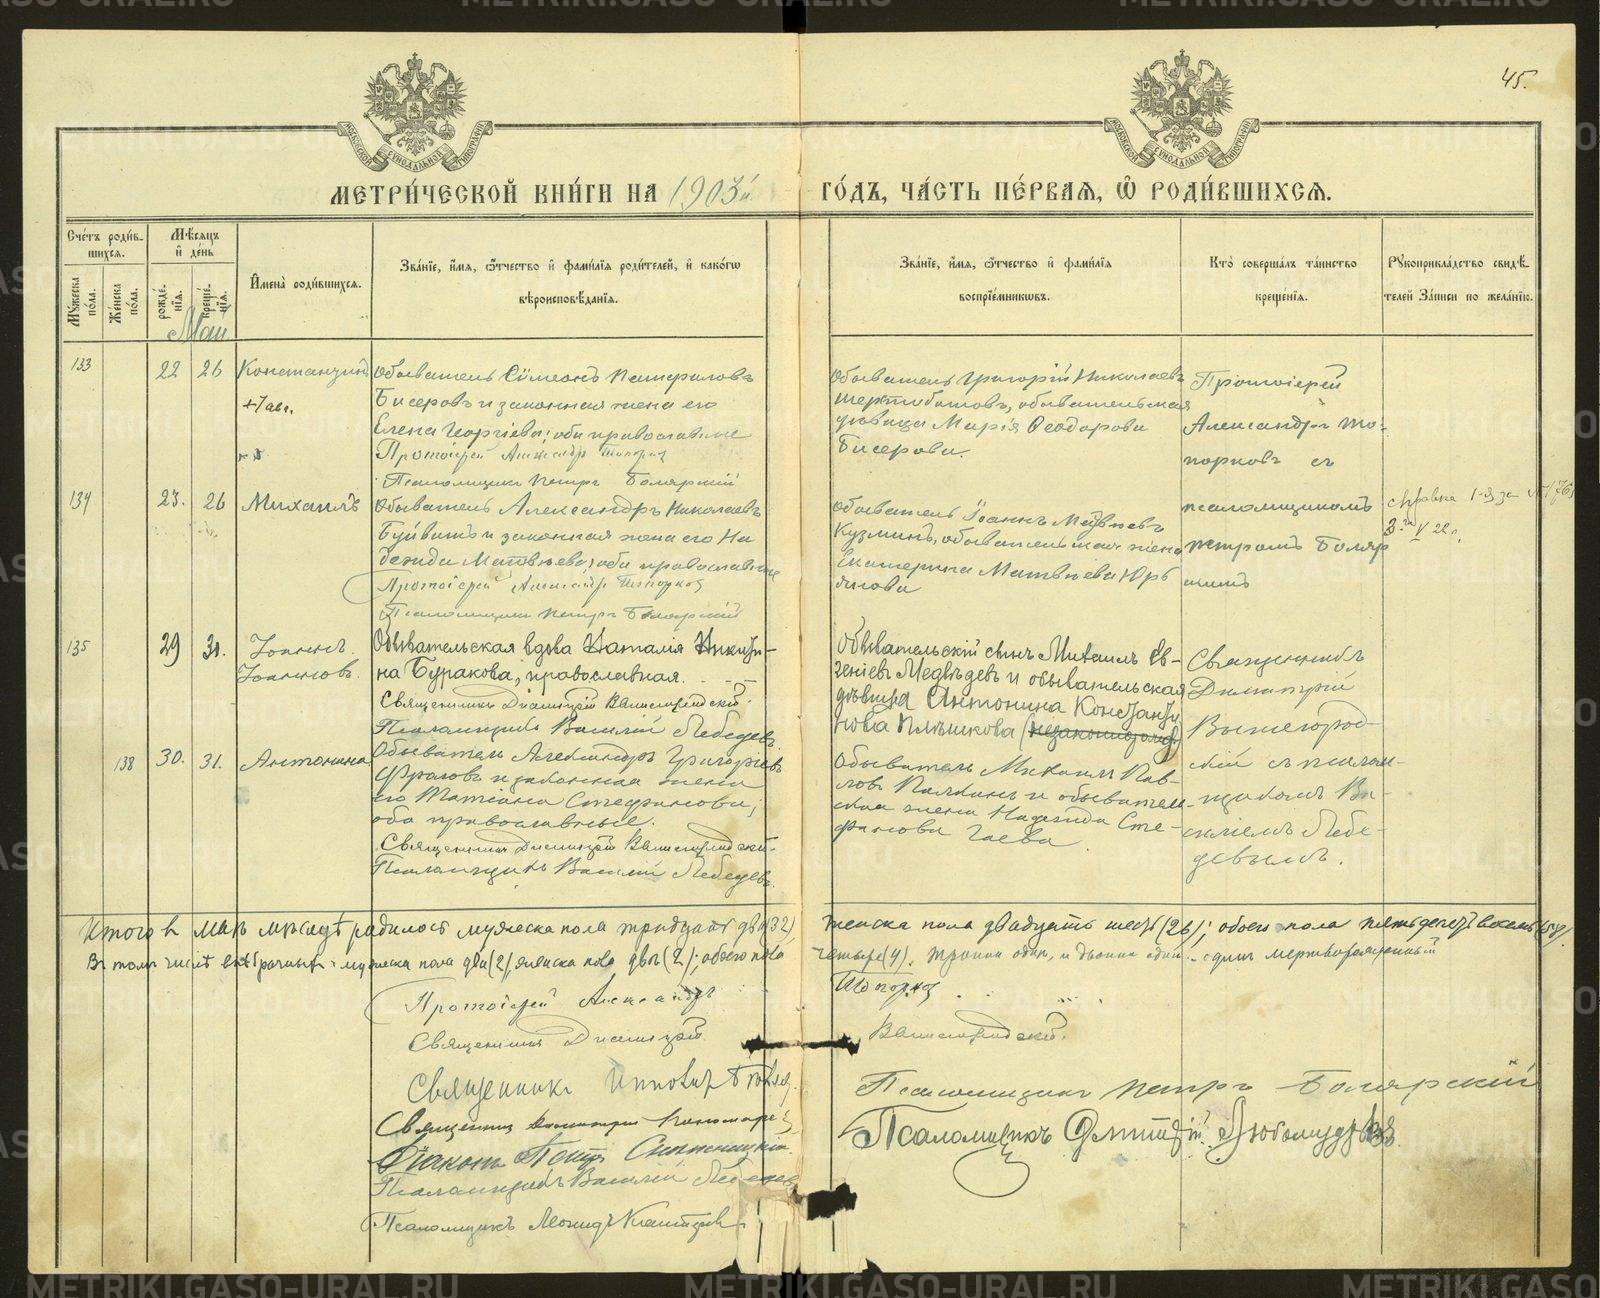 45.
МЕТРИ́ЧЕСКОЙ КНИ́ГИ НА 1903й ГО́ДЪ, ЧА́СТЬ ПЕ́РВАЯ, Ѡ҆ РОДИ́ВШИХСЯ.
Сче́тъ роди́вшихся.
Му́жеска по́ла.
Же́нска по́ла.
Мѣ́сяцъ и҆ де́нь
рожде́нїя.
креще́нїя.
И҆мена̀ роди́вшихся.
Зва́нїе, и҆́мя, ѻ҆́тчество и҆ фами́лїя роди́телей, и҆ како́гѡ
вѣроисповѣ́данїя.
Зва́нїе, и҆́мя, ѻ҆́тчество и҆ фами́лїя
воспрїе́мникѡвъ.
Кто̀ соверша́лъ та́инство
креще́нїя.
Рꙋкоприкла́дство свидѣ́телей За́писи по жела́нїю.
Май
133 22 26 Константинъ
+7 авг.
Обыватель Сѵмеонъ
Бисеровъ и законная жена его
Елена Георгіева; оба православные
Протоіерей Александръ Топорковъ
Псаломщикъ Петръ Боярскій
Обыватель Григорій Николаевъ
обывательская
дѣвица Марія Ѳеодорова
Бисерова.
Протоіерей
Александръ То-
порковъ съ
134 23. 26 Михаилъ
Обыватель Александръ Николаевъ
и законная жена его На
дежда Матвѣева; оба православные
Протоіерей Александръ Топорковъ
Псаломщикъ Петръ Боярскій
Обыватель Іоаннъ Матвѣевъ
Кузминъ, обывательская жена
Екатерина Матвѣева
псаломщикомъ
Петромъ Бояр
скимъ
Справка
135 29 31. Іоаннъ.
Іоанновъ.
Обывательская вдова Наталія Никити-
на Буракова, православная.
Священникъ Димитрій Вышегородскій.
Псаломщикъ Василій Лебедевъ.
Обывательскій сынъ Михаилъ Ев-
геніевъ Медвѣдевъ и обывательская
дѣвица Антонина Константи
нова Плѣшкова
Священникъ
Димитрій
Вышегород-
скій съ псалом-
щикомъ Ва-
силіемъ Лебе-
девымъ.
138 30. 31. Антонина
Обыватель Александръ Григорьевъ
Фроловъ и законная жена
его Татіана Стефанова;
оба православные.
Священникъ Димитрій Вышегородскій.
Псаломщикъ Василій Лебедевъ.
Обыватель Михаилъ Пав-
ловъ и обыватель-
ская жена Надежда Сте-
фанова Гаева.
Итого въ Маѣ мѣсяцѣ родилось мужеска пола тридцать два (32) женска пола двадцать шесть (26); обоего пола пятьдесятъ восемь (58).
Въ томъ числѣ внѣбрачныхъ: мужеска пола два (2) женска пола двѣ (2); обоего пола четыре (4). тройни одни, и двойни одни одинъ мертворожденный
Протоіерей Александръ Топорковъ
Священникъ Димитрій Вышегородскій.
Священникъ
Священникъ
Діаконъ
Псаломщикъ Василій Лебедевъ
Псаломщикъ Леонидъ
Псаломщикъ Петръ Боярскій
Псаломщикъ Димитрій Любомудровъ
METRIKI.GASO-URAL.RU